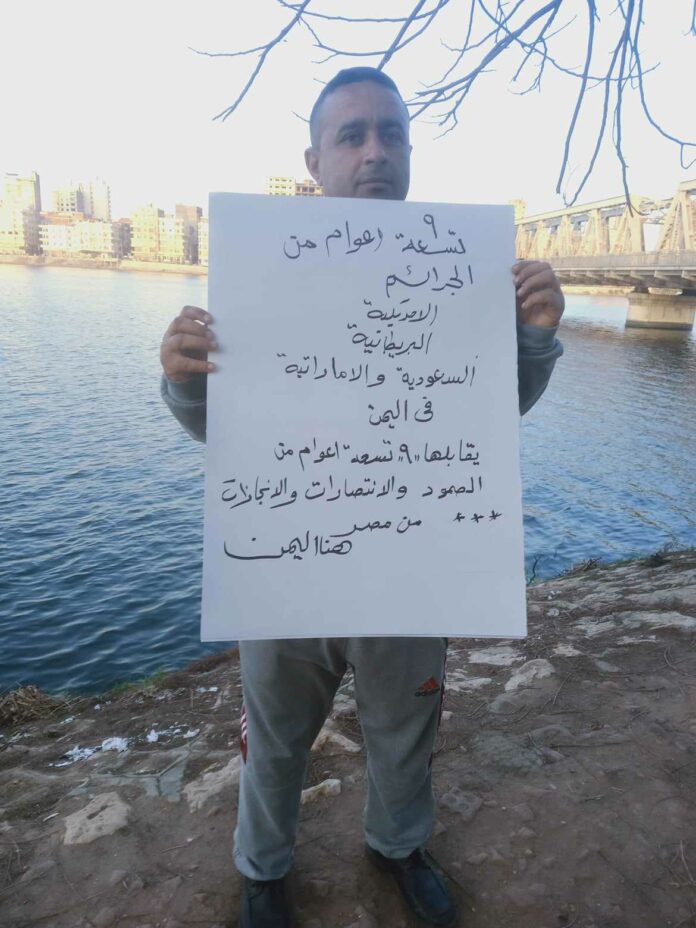 ٩
تسعة اعوام من
الجرائم
الامريكية
البريطانية
السعودية والاماراتية
فى اليمن
يقابلها "٩" تسعة اعوام من
الصمود والانتصارات والانجازات
*** من مصر
هنا اليمن
adidas